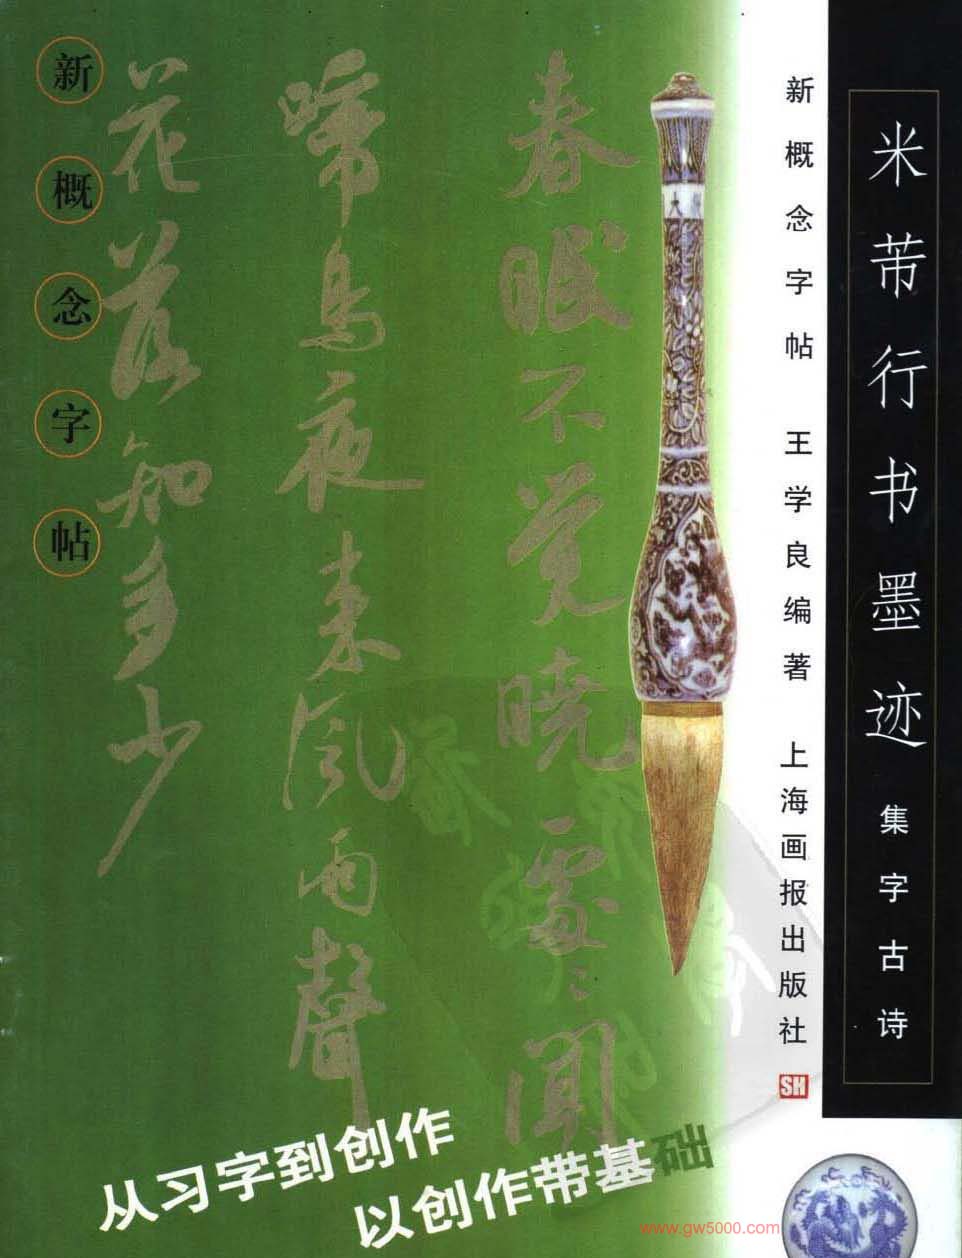 米芾行书墨迹 集字古诗
新概念字帖 王学良编著 上海画报出版社 SH
春眠不觉晓處〻闻
啼鸟夜来风雨聲
花落知多少
新概念字帖
从习字到创作
以创作带基础
www.gw5000.com